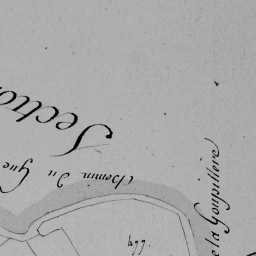 Section
Chemin du Gué
de la Goupillère